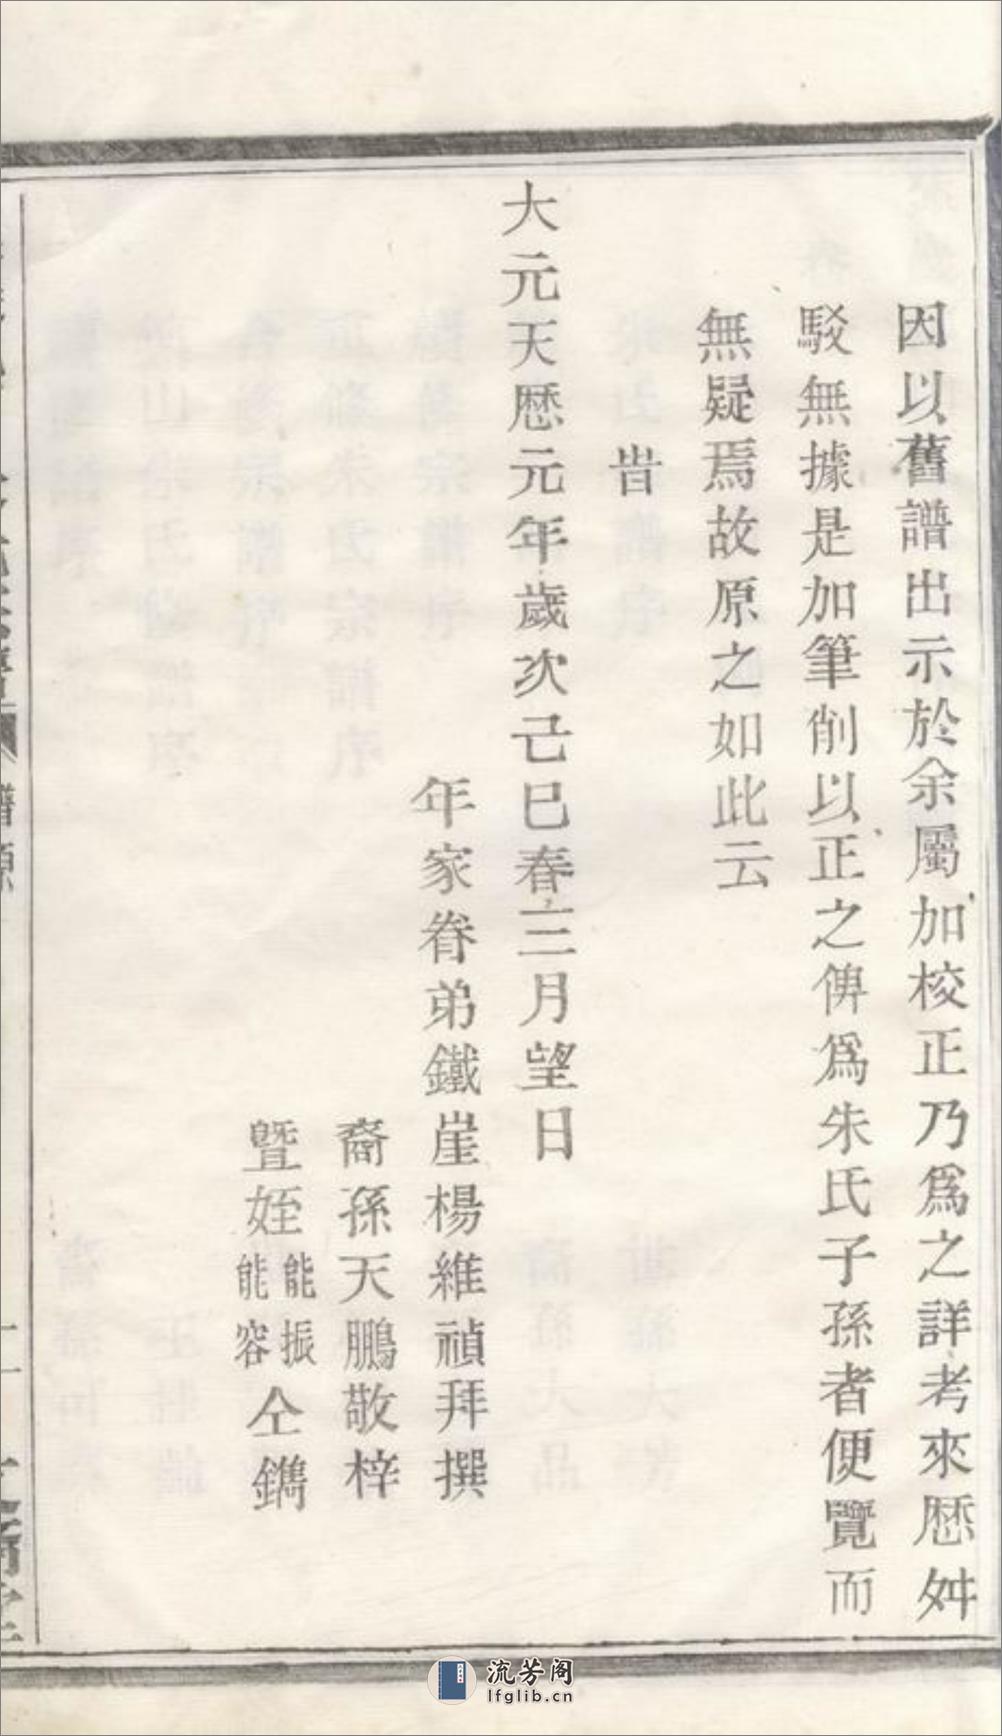 因以舊譜出示於余屬加校正乃爲之詳考來歷舛
駁無據是加筆削以正之俾爲朱氏子孫者便覽而
無疑焉故原之如此云
旹
大元天歷元年歲次己巳春三月望日
年家眷弟鐵崖楊維禎拜撰
裔孫天鵬敬梓
暨姪能振能容仝鐫
譜源
流芳阁
lfglib.cn